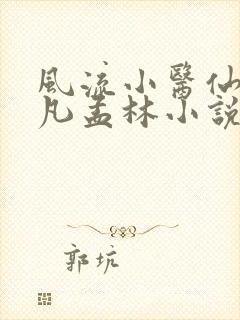 風流小醫仙
凡孟林小說
郭坑